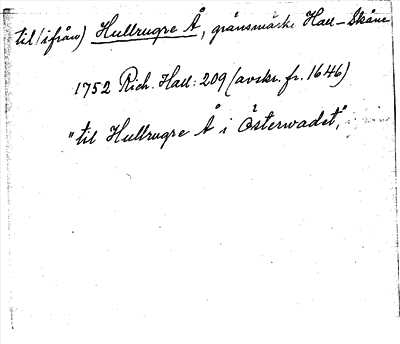 til (ifrån) Hullrugre Å, gränsmärke Hall-Skåne
1752 Rich. Hall: 209 (avskr. fr. 1646)
"til Hullrugre Å i Österwadet",